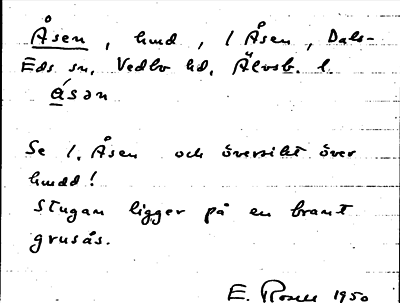 Åsen, hmd, 1 Åsen, Dals-
Eds sn, Vedbo hd, Älvsb. l.
åsən
Se 1. Åsen och översikt över
hmdd!
Stugan ligger på en brant
grusås.
E. Rosell 1950